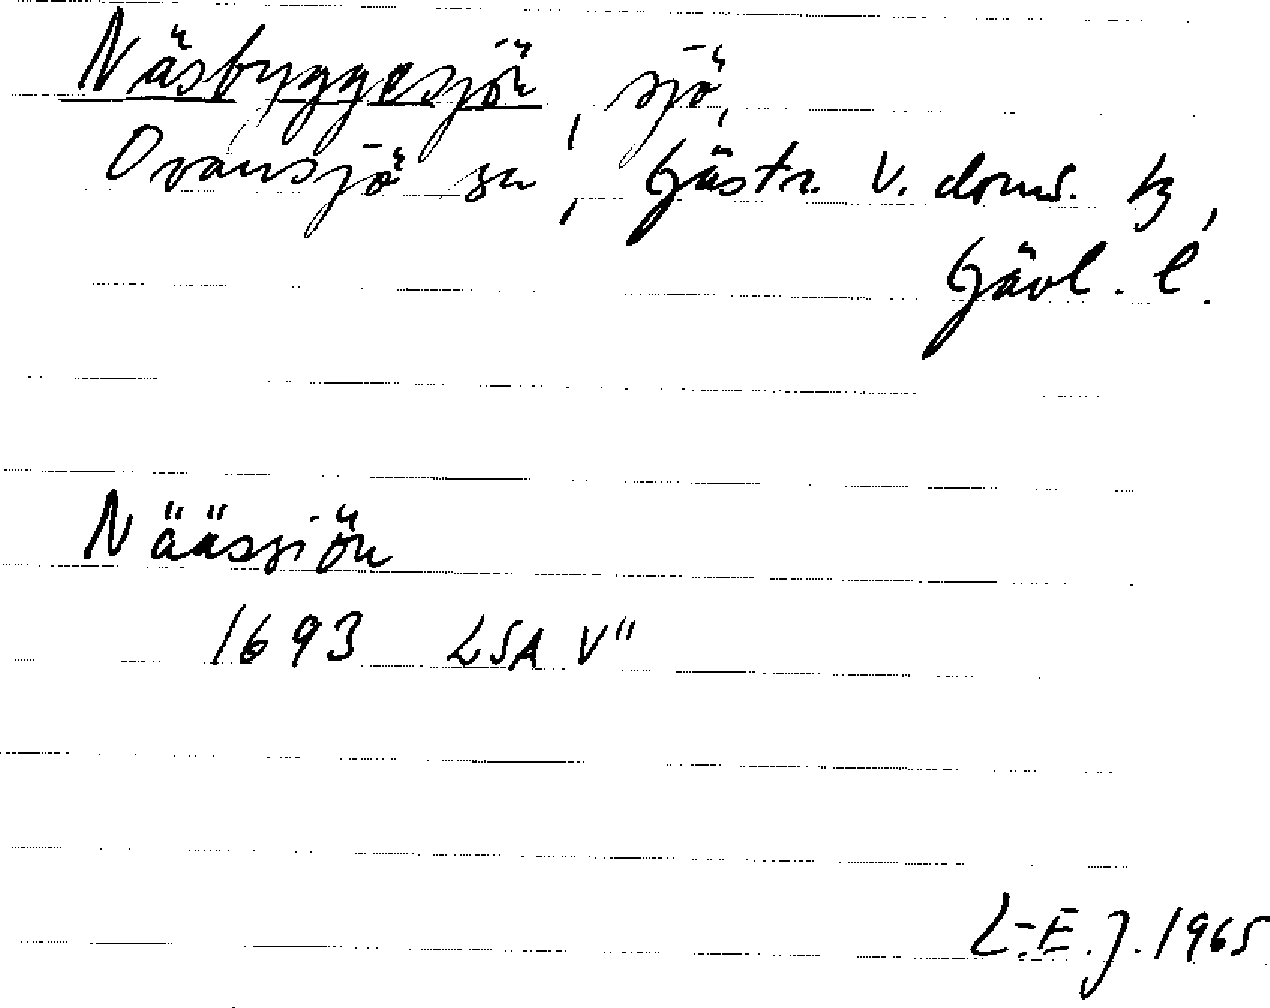 Näsbyggesjön, sjö,
Ovansjö sn, Gästr. V. doms. tg,
Gävl. l.
Nääsjiön
1693 LSA V"
L-E. J. 1965